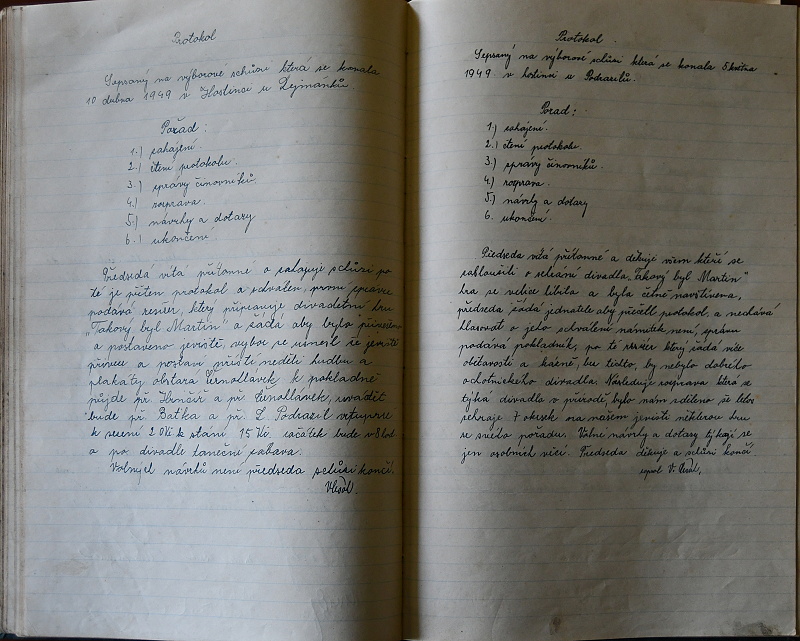 Protokol
Sepsaný na výborové schůzi která se konala
10 dubna 1949 v Hostinci u Zejmánků.
Pořad:
1.) zahájení.
2.) čtení protokolu.
3.) zprávy činovníků.
4.) rozprava.
5.) návrhy a dotazy
6.) ukončení
Předseda vítá přítomné a zahajuje schůzi po
té je přečten protokol a schválen, první zprávu
podává režisér, který připravuje divadelní hru
"Takový byl Martin" a žádá aby bylo
a postaveno jeviště, výbor se usnesl že jeviště
přiveze a postaví příští neděli hudbu a
plakáty obstará Černollávek k pokladně
půjde př. Hrnčíř a př. Černollávek, uvádět
bude př. Baťka a př. L. Podrazil vstupné
k sezení 20 Kč k stání 15 Kč začátek bude v 8 hod
a po divadle taneční zábava.
Volných návrhů není předseda schůzi končí.
Protokol.
Sepsaný na výborové schůzi která se konala 5 května
1949 v hostinci u Podrazilů.
Pořad:
1.) zahájení.
2.) čtení protokolu.
3.) zprávy činovníků.
4.) rozprava.
5.) návrhy a dotazy
6. ukončení.
Předseda vítá přítomné a děkuje všem kteří se
zasloužili o sehrání divadla, Takový byl Martin"
hra se velice líbila a byla četně navštívena,
předseda žádá jednatele aby přečetl protokol, a nechává
hlasovat o jeho schválení námitek není, zprávu
podává pokladník, po té režisér který žádá více
obětavosti a kázně, bez těchto, by nebylo dobrého
ochotnického divadla. Následuje rozprava která se
týká divadla v přírodě, bylo nám sděleno že letos
sehraje 7 okrsek na našem jevišti některou hru
ze svého pořadu. Volné návrhy a dotazy týkají se
jen osobních věcí. Předseda děkuje a schůzi končí.
zapsal V.